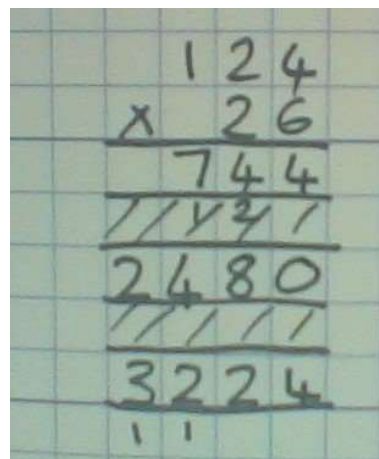 124
× 26
744
12
2480
3224
11